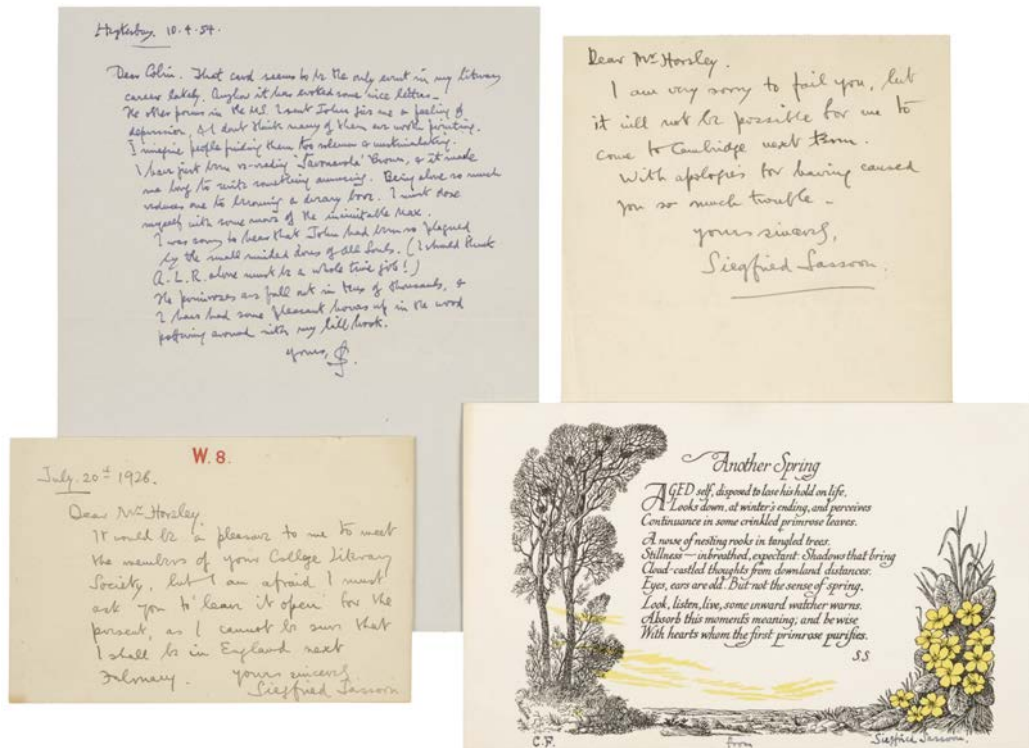 Heytesbury. 10.4.54.
Dear Colin. That card seems to be the only event in my literary
career lately. Anyhow it has evoked some nice letters.
The other poems in the MS. I sent John give me a feeling of
depression, & I don't think many of them are worth printing.
I imagine people finding them too solemn & unstimulating.
I have just been re-reading 'Savonarola' Brown, & it made
me long to write something amusing. Being alone so much
reduces one to becoming a dreary bore. I must dose
myself with some more of the inimitable Max.
I was sorry to hear that John had been so plagued
by the small minded dons of All Souls. (I should think
A.L.R. alone must be a whole time job!)
The primroses are full out in tens of thousands, &
I have had some pleasant hours up in the wood
pottering around with my bill hook.
yours, SS.
Dear Mr Horsley.
I am very sorry to fail you, but
it will not be possible for me to
come to Cambridge next term.
With apologies for having caused
you so much trouble –
yours sincerely,
Siegfried Sassoon.
W. 8.
July. 20th 1926.
Dear Mr Horsley.
It would be a pleasure to me to meet
the members of your College Literary
Society, but I am afraid I must
ask you to 'leave it open' for the
present, as I cannot be sure that
I shall be in England next
February. yours sincerely
Siegfried Sassoon
Another Spring
AGED self, disposed to lose his hold on life,
Looks down, at winter's ending, and perceives
Continuance in some crinkled primrose leaves.
A noise of nesting rooks in tangled trees.
Stillness — inbreathed, expectant. Shadows that bring
Cloud-castled thoughts from downland distances.
Eyes, ears are old. But not the sense of spring.
Look, listen, live, some inward watcher warns.
Absorb this moment's meaning; and be wise
With hearts whom the first primrose purifies.
S.S.
C.F. from Siegfried Sassoon.